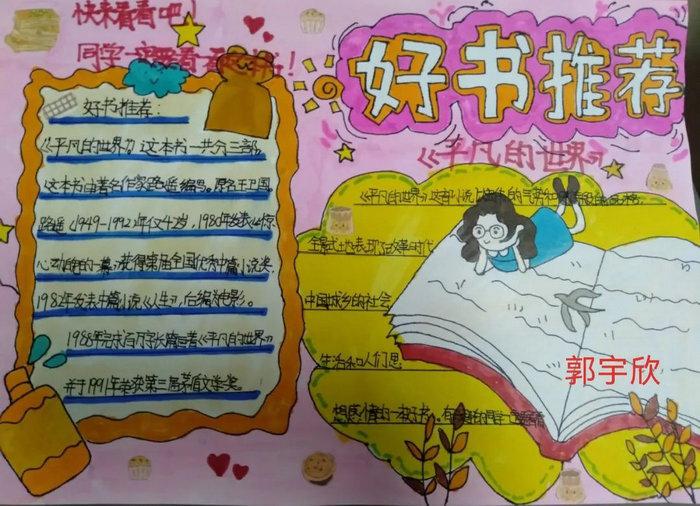 快来看看吧！
同学一定要看看这本书！
好书推荐：
《平凡的世界》，这本书一共分三部，
这本书由著名作家路遥编写。原名王卫国。
路遥（1949-1992）年仅42岁，1980年发表《惊
心动魄的一幕》获得第一届全国优秀中篇小说奖，
1982年发表中篇小说《人生》，后编为电影。
1988年完成百万字长篇巨著《平凡的世界》
并于1991年荣获第三届茅盾文学奖。
好书推荐
《平凡的世界》
《平凡的世界》这部小说
全景式地表现了改革时代
中国城乡的社会
生活和人们思
想感情的一本好书。
郭宇欣